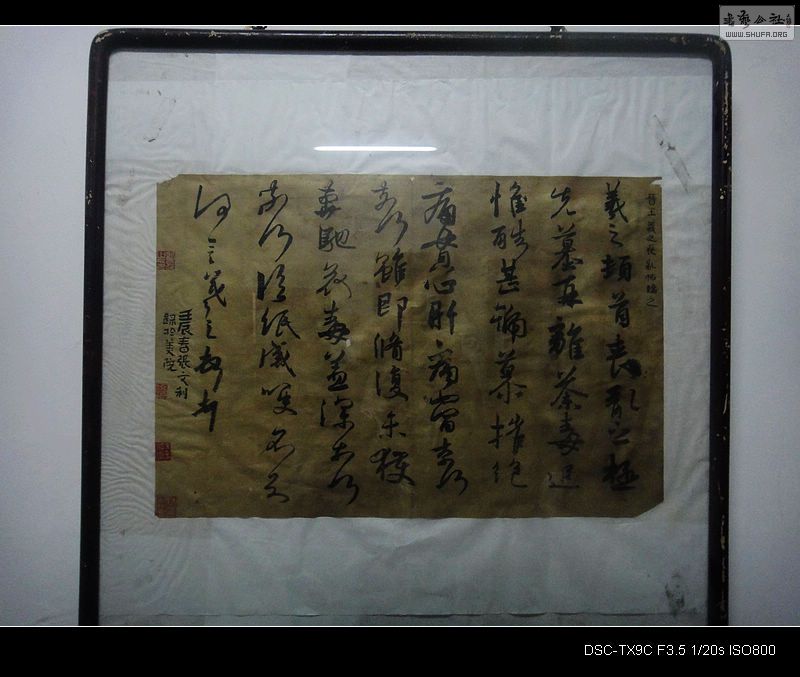 書法公社
WWW.SHUFA.ORG
晋王羲之喪亂帖臨之
羲之頓首喪亂之極
先墓再離荼毒追
惟酷甚號慕摧絕
痛貫心肝痛當奈何
奈何雖即脩復未獲
奔馳哀毒益深奈何
奈何臨紙感哽不知
何言羲之頓首
壬辰春張文利
錄於美院
DSC-TX9C F3.5 1/20s ISO800